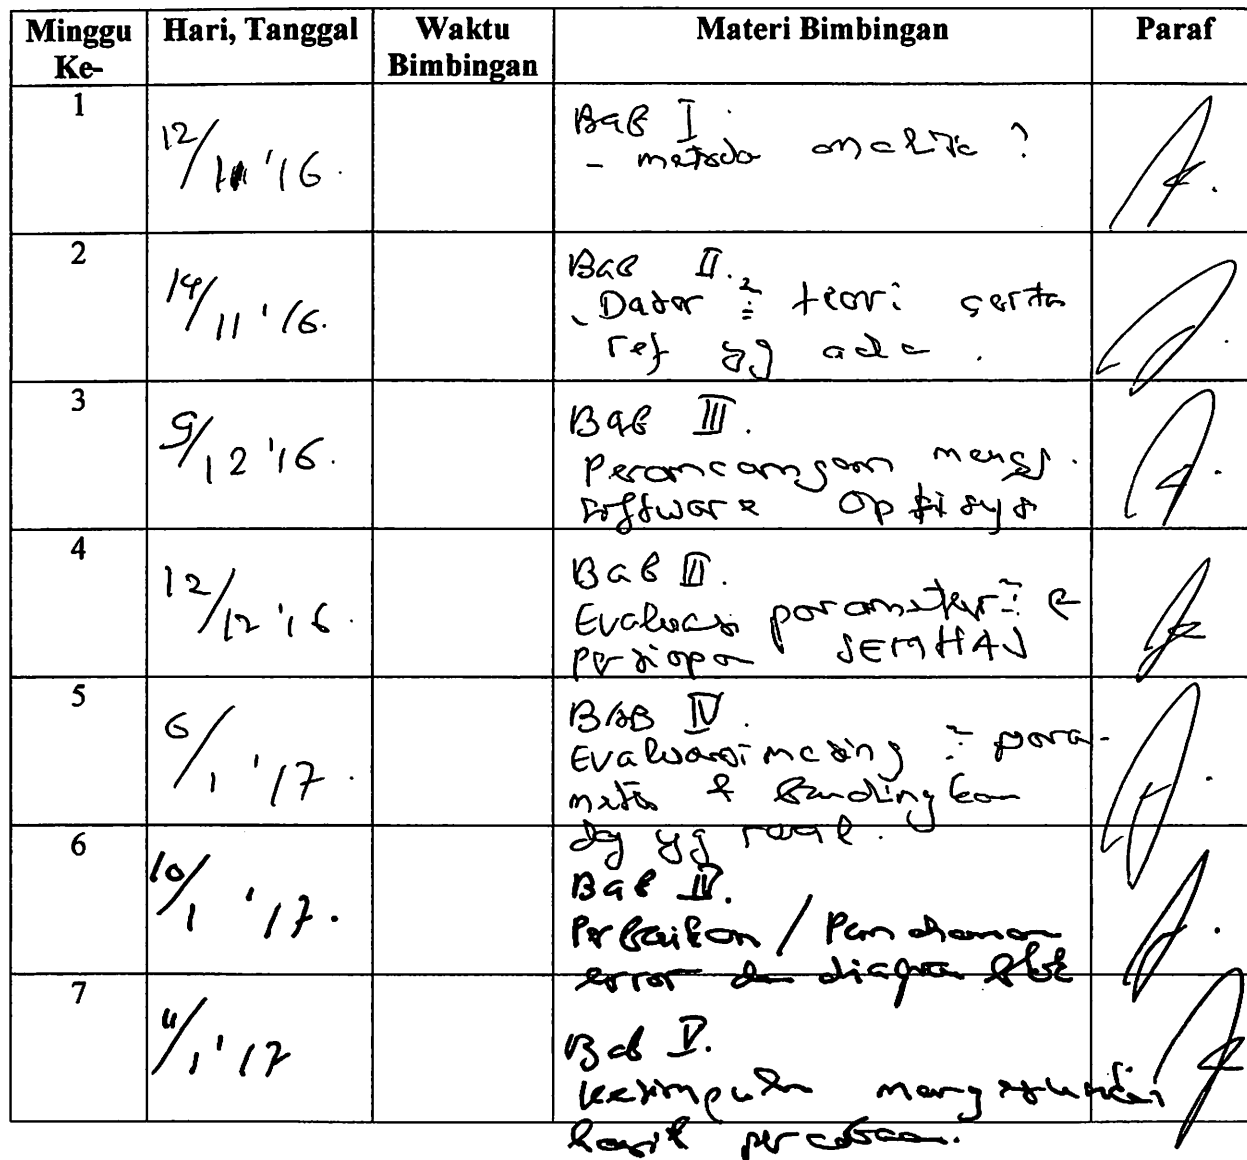 Minggu Ke- Hari, Tanggal Waktu Bimbingan Materi Bimbingan Paraf
1 12/ '16. Bab I.
- metoda analitis ?
2 14/11 '16. Bab II.
- Dasar ² teori serta
ref yg ada .
3 9/12 '16. Bab III.
Perancangan mengg.
software Optisys
4 12/12 '16. Bab III.
Evaluasi parameter ² &
persiapan SEMHAS
5 6/1 '17. BAB IV.
Evaluasi masing ² para-
meter & bandingkan
dg yg real.
6 10/1 '17. Bab IV.
Perbaikan /
error dan diagram blok
7 11/1 '17 Bab V.
Kesimpulan
hasil percobaan.